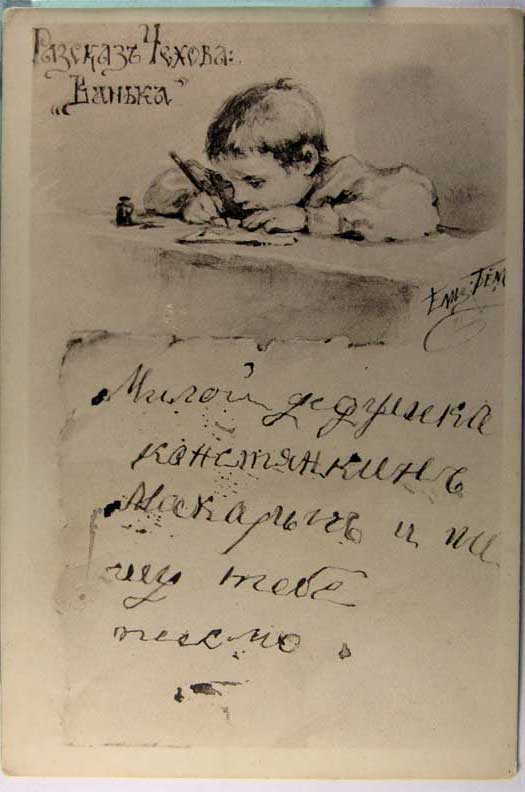 Разсказъ Чехова:
„Ванька"
Ели: Бем
Милой дедушка
констянкинъ
Макарычъ и пи
шу тебе
писмо.